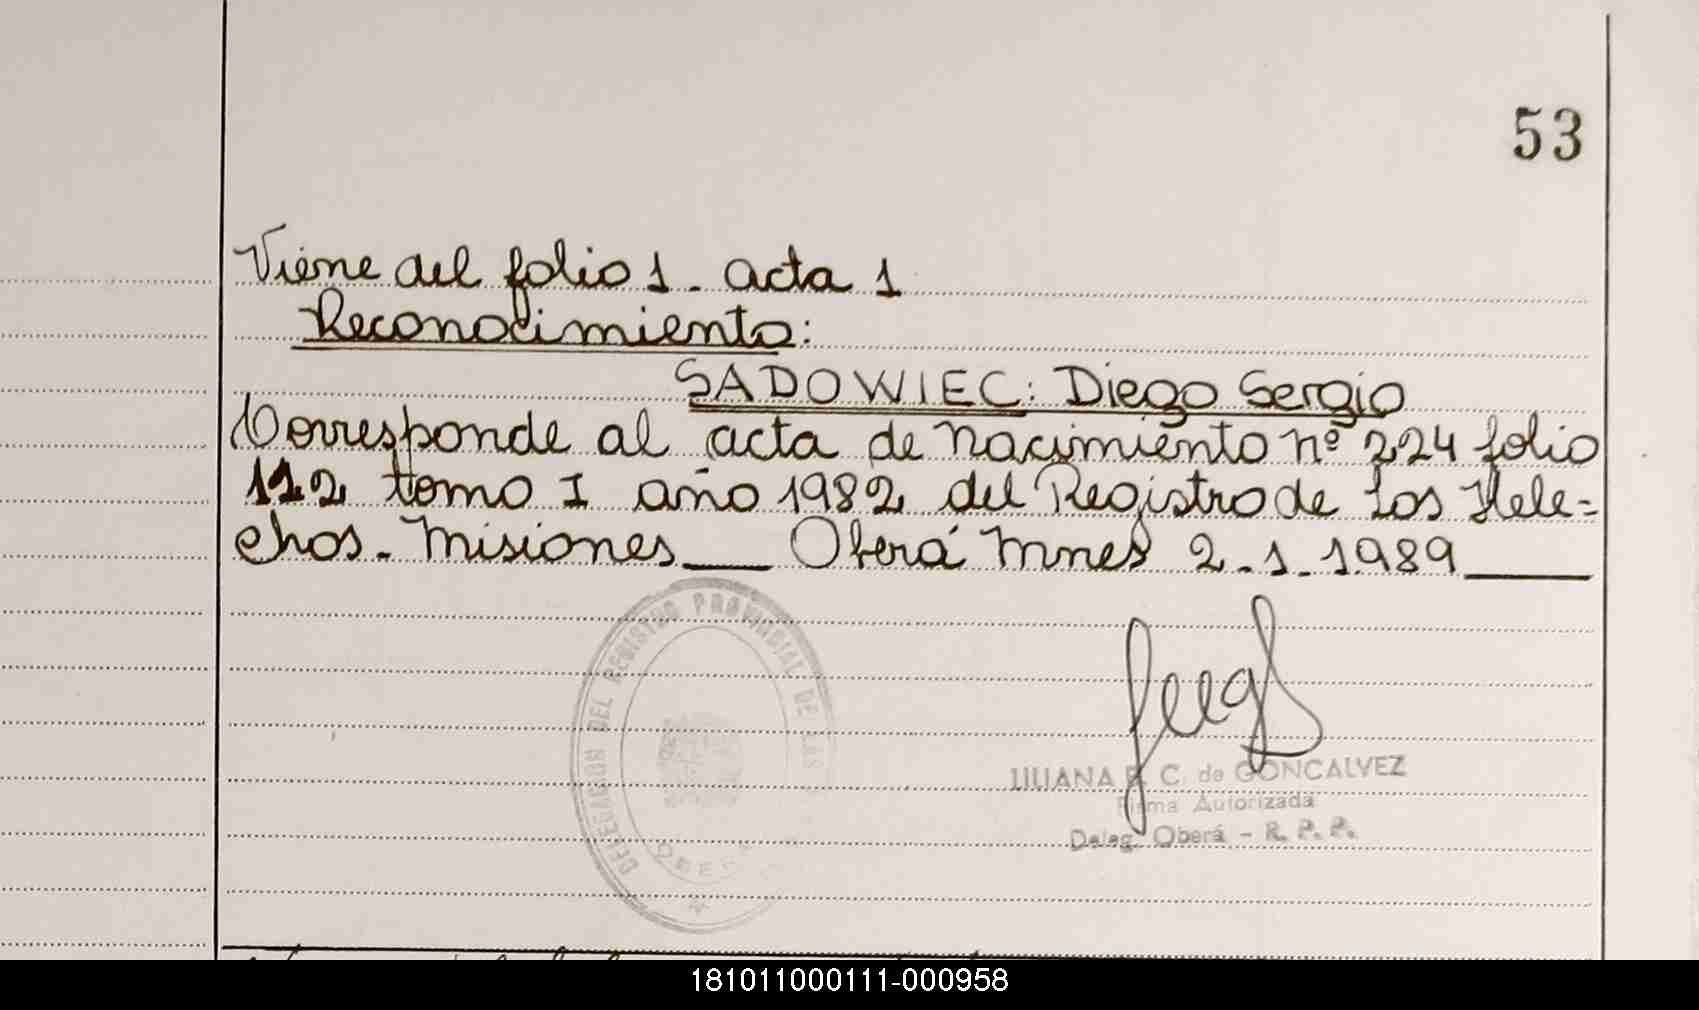 53
Viene del folio 1. acta 1
Reconocimiento:
SADOWIEC: Diego Sergio
Corresponde al acta de nacimiento nº 224 folio
112 tomo I año 1982 del Registro de Los Hele=
chos. Misiones__ Oberá Mnes 2.1.1989__
DELEGACION DEL REGISTRO PROVINCIAL DE LAS
OBERA
LILIANA C. de GONCALVEZ
Firma Autorizada
Deleg. Oberá - R. P. P.
181011000111-000958